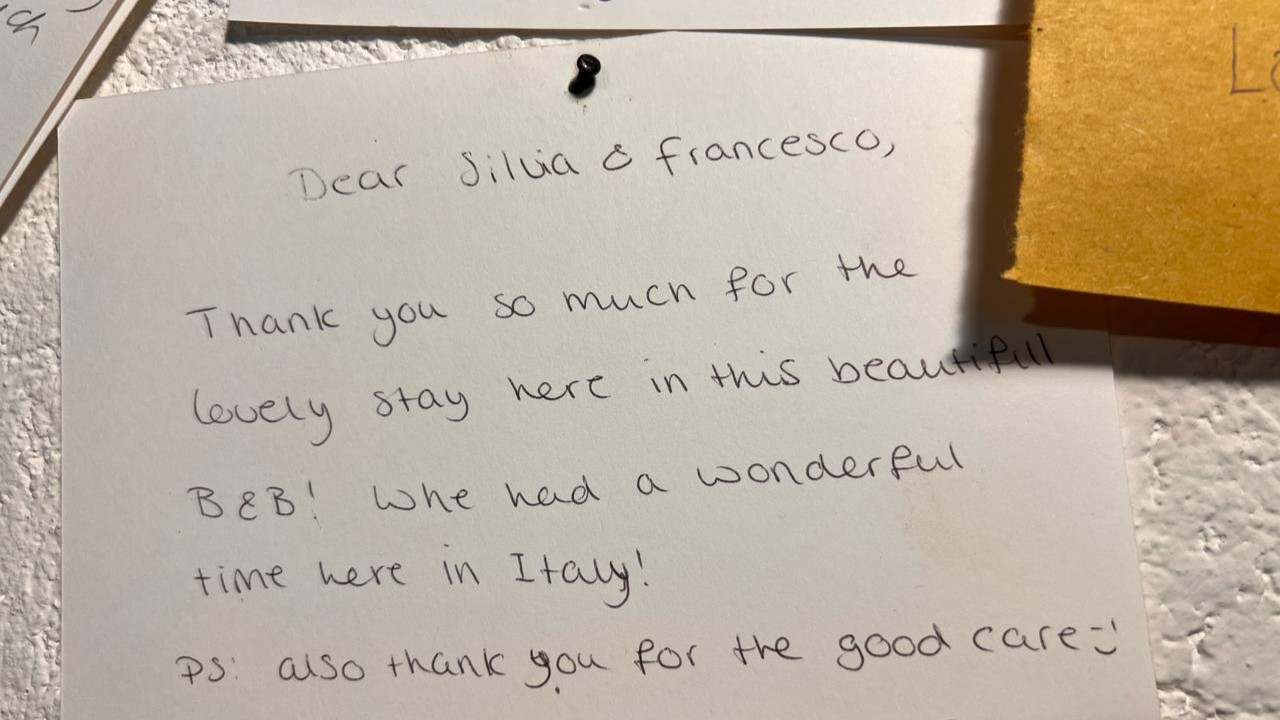 Dear Silvia & francesco,
Thank you so much for the
lovely stay here in this beautifull
B&B! Whe had a wonderful
time here in Italy!
PS: also thank you for the good care :)